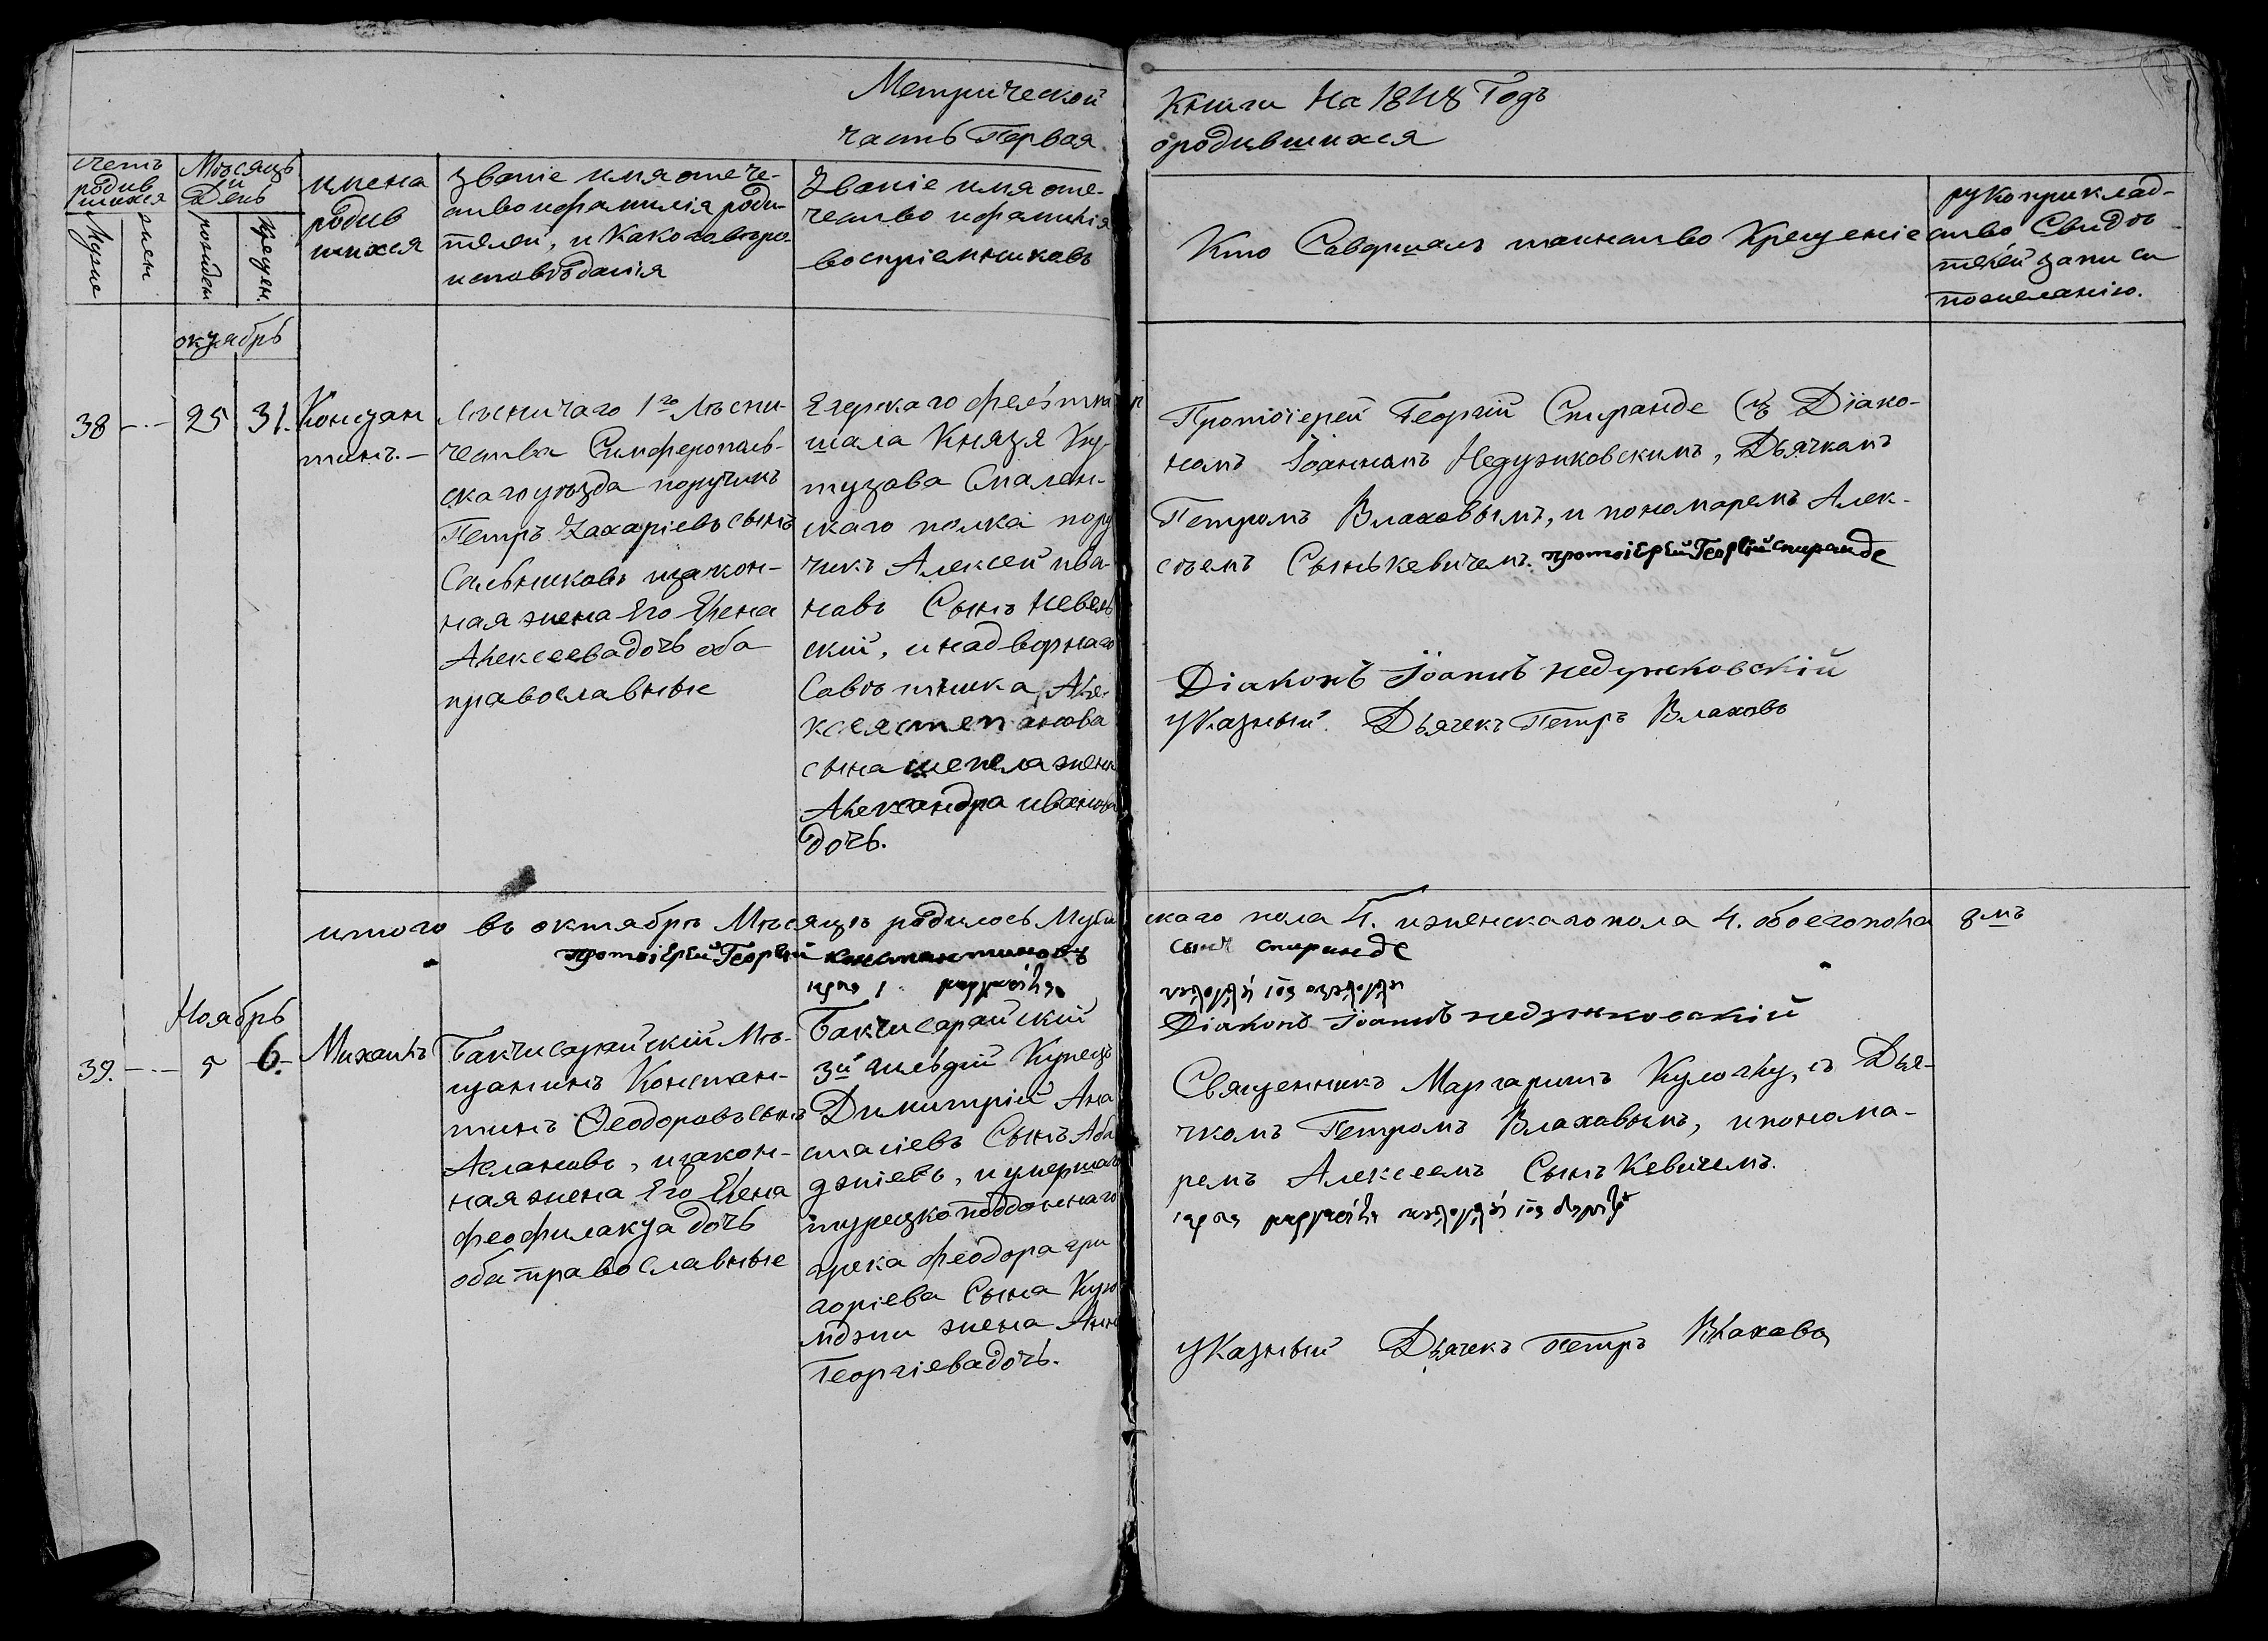 Метрической
часть Первая
Книги На 1848 Годъ
ородившихся
счетъ
родив
шихся
Мѣсяцъ
и
День
Муже
жен
рожден
крещен.
имена
родив
шихся
Званіе имя отече-
ство ифамилія роди-
телей, и Какоговѣро-
исповѣданія
Званіе имя оте-
чество ифамилія
воспріемниковъ
Кто Савершалъ таинство Крещеніе
рукоприклад-
ство Свидѣ
телей записи
пожеланію.
октябрь
38 – · – 25 31.
Констан
тинъ. –
Лѣсничаго 1го Лѣсни-
чества Симферополь-
скагоуѣзда поручикъ
Петръ Захаріевъ сынъ
Сальниковъ изакон-
ная жена Его Елена
Алексеевадочь оба
православные
Егерскаго фельтма
шала Князя Ку-
тузова Смален-
скаго полка пору
чикъ Алексей ива-
навъ Сынъ Невель
ский, инадворнаго
Савѣтника Але-
ксеястепанова
сынашепелажена
Александра иванова
дочь.
Протоіерей Георгій Спиранде Съ Діако-
намъ Іоаннамъ Недужковскимъ, Дьячкамъ
Петромъ Влаховымъ, и пономаремъ Алек-
сѣемъ Сынькевичемъ. протоіерейГеоргійспиранде
Діаконъ Іоаннъ недужковскій
указный Дьячекъ Петръ Влаховъ
итого въ октябрѣ Мѣсяцѣ родилось Муже
скаго пола 4. иженскагопола 4. обоегопола 8мъ
протоіерейГеоргій константиновъ
сынъ спиранде
Діаконъ Іоаннъ недужковскій
Ноябрь
39. – · – 5 6.
Михаилъ
Бакчисарайскій Мѣ-
щанинъ Констан-
тинъ Феодоровъ сынъ
Аслановъ, изакон-
ная жена Его Елена
феофилакта дочь
оба православные
Бакчисарайский
3й гильдій Купецъ
Димитрій Ана
стасіевъ Сынъ Аба
джіевъ, иумершаго
турецкоподданнаго
грека Феодора гри
горіева Сына Кую
мджи жена Анна
Георгіевадочь.
Священникъ Маргаритъ Кулоглу, съ Дья-
чкомъ Петромъ Влаховымъ, ипонома-
ремъ Алексеемъ СынъКевичемъ.
указный Дьячекъ Петръ Влаховъ